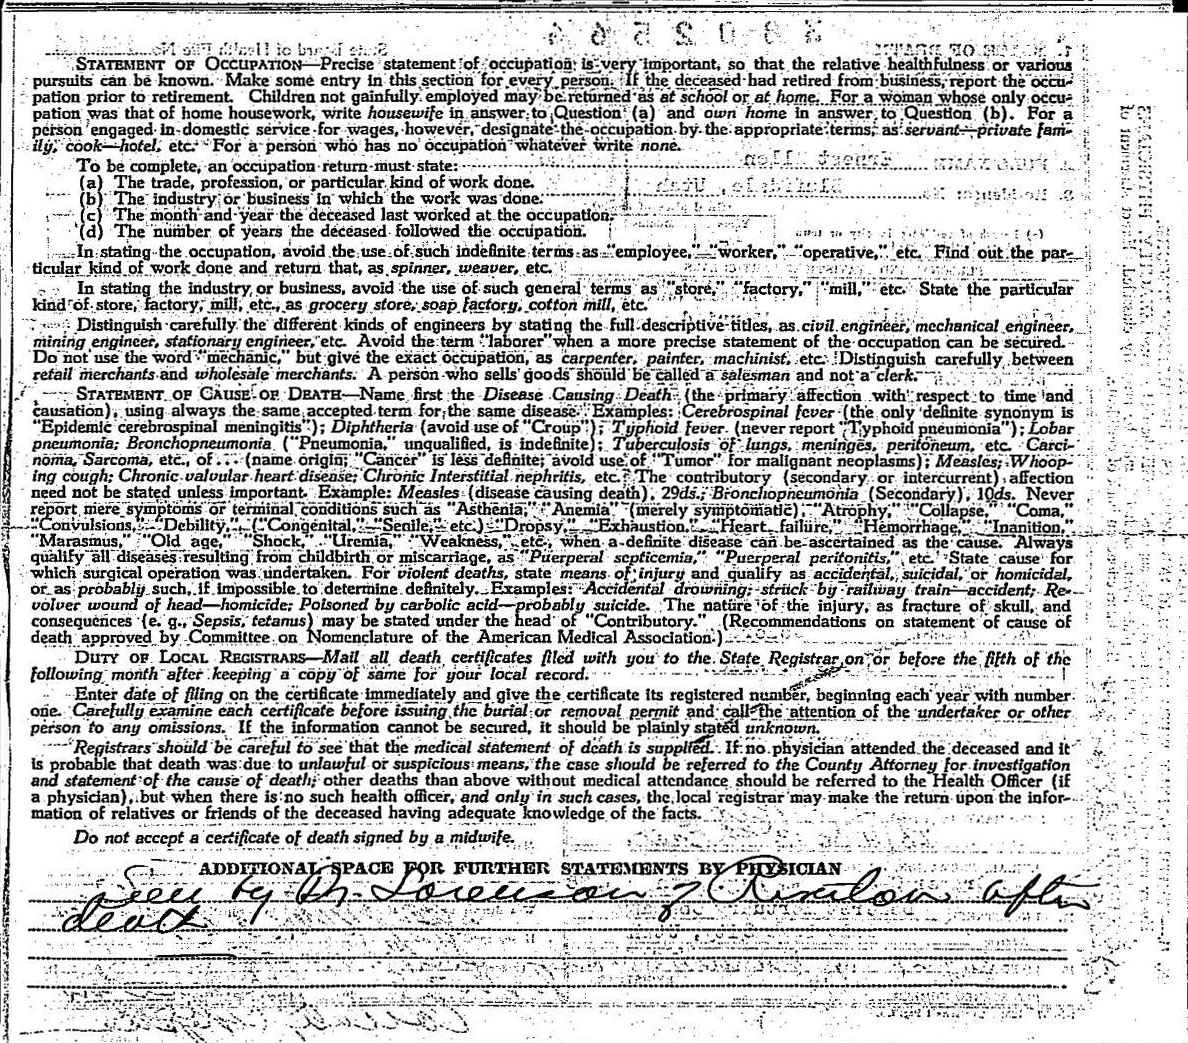 STATEMENT OF OCCUPATION—Precise statement of occupation is very important, so that the relative healthfulness or various
pursuits can be known. Make some entry in this section for every person. If the deceased had retired from business, report the occu-
pation prior to retirement. Children not gainfully employed may be returned as at school or at home. For a woman whose only occu-
pation was that of home housework, write housewife in answer to Question (a) and own home in answer to Question (b). For a
person engaged in domestic service for wages, however, designate the occupation by the appropriate terms, as servant—private fam-
ily, cook—hotel, etc. For a person who has no occupation whatever write none.
To be complete, an occupation return must state:
(a) The trade, profession, or particular kind of work done.
(b) The industry or business in which the work was done.
(c) The month and year the deceased last worked at the occupation.
(d) The number of years the deceased followed the occupation.
In stating the occupation, avoid the use of such indefinite terms as "employee," "worker," "operative," etc. Find out the par-
ticular kind of work done and return that, as spinner, weaver, etc.
In stating the industry or business, avoid the use of such general terms as "store," "factory," "mill," etc. State the particular
kind of store, factory, mill, etc., as grocery store, soap factory, cotton mill, etc.
Distinguish carefully the different kinds of engineers by stating the full descriptive titles, as civil engineer, mechanical engineer,
mining engineer, stationary engineer, etc. Avoid the term "laborer" when a more precise statement of the occupation can be secured.
Do not use the word "mechanic," but give the exact occupation, as carpenter, painter, machinist, etc. Distinguish carefully between
retail merchants and wholesale merchants. A person who sells goods should be called a salesman and not a clerk.
STATEMENT OF CAUSE OF DEATH—Name first the Disease Causing Death (the primary affection with respect to time and
causation), using always the same accepted term for the same disease. Examples: Cerebrospinal fever (the only definite synonym is
"Epidemic cerebrospinal meningitis"); Diphtheria (avoid use of "Croup"); Typhoid fever (never report "Typhoid pneumonia"); Lobar
pneumonia; Bronchopneumonia ("Pneumonia," unqualified, is indefinite); Tuberculosis of lungs, meninges, peritoneum, etc. Carci-
noma, Sarcoma, etc., of... (name origin; "Cancer" is less definite; avoid use of "Tumor" for malignant neoplasms); Measles; Whoop-
ing cough; Chronic valvular heart disease; Chronic Interstitial nephritis, etc. The contributory (secondary or intercurrent) affection
need not be stated unless important. Example: Measles (disease causing death), 29ds.; Bronchopneumonia (Secondary), 10ds. Never
report mere symptoms or terminal conditions such as "Asthenia," "Anemia" (merely symptomatic), "Atrophy," "Collapse," "Coma,"
"Convulsions," "Debility," ("Congenital," "Senile," etc.) "Dropsy," "Exhaustion," "Heart failure," "Hemorrhage," "Inanition,"
"Marasmus," "Old age," "Shock," "Uremia," "Weakness," etc., when a definite disease can be ascertained as the cause. Always
qualify all diseases resulting from childbirth or miscarriage, as "Puerperal septicemia," "Puerperal peritonitis," etc. State cause for
which surgical operation was undertaken. For violent deaths, state means of injury and qualify as accidental, suicidal, or homicidal,
or as probably such, if impossible to determine definitely. Examples: Accidental drowning; struck by railway train—accident; Re-
volver wound of head—homicide; Poisoned by carbolic acid—probably suicide. The nature of the injury, as fracture of skull, and
consequences (e. g., Sepsis, tetanus) may be stated under the head of "Contributory." (Recommendations on statement of cause of
death approved by Committee on Nomenclature of the American Medical Association.)
DUTY OF LOCAL REGISTRARS—Mail all death certificates filed with you to the State Registrar on or before the fifth of the
following month after keeping a copy of same for your local record.
Enter date of filing on the certificate immediately and give the certificate its registered number, beginning each year with number
one. Carefully examine each certificate before issuing the burial or removal permit and call the attention of the undertaker or other
person to any omissions. If the information cannot be secured, it should be plainly stated unknown.
Registrars should be careful to see that the medical statement of death is supplied. If no physician attended the deceased and it
is probable that death was due to unlawful or suspicious means, the case should be referred to the County Attorney for investigation
and statement of the cause of death; other deaths than above without medical attendance should be referred to the Health Officer (if
a physician), but when there is no such health officer, and only in such cases, the local registrar may make the return upon the infor-
mation of relatives or friends of the deceased having adequate knowledge of the facts.
Do not accept a certificate of death signed by a midwife.
ADDITIONAL SPACE FOR FURTHER STATEMENTS BY PHYSICIAN
Seen by Dr. Sorenson of after
death